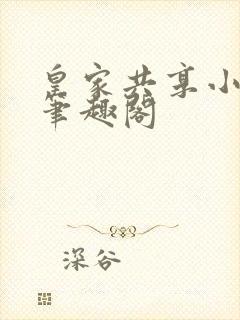 皇家共享小
笔趣阁
深谷